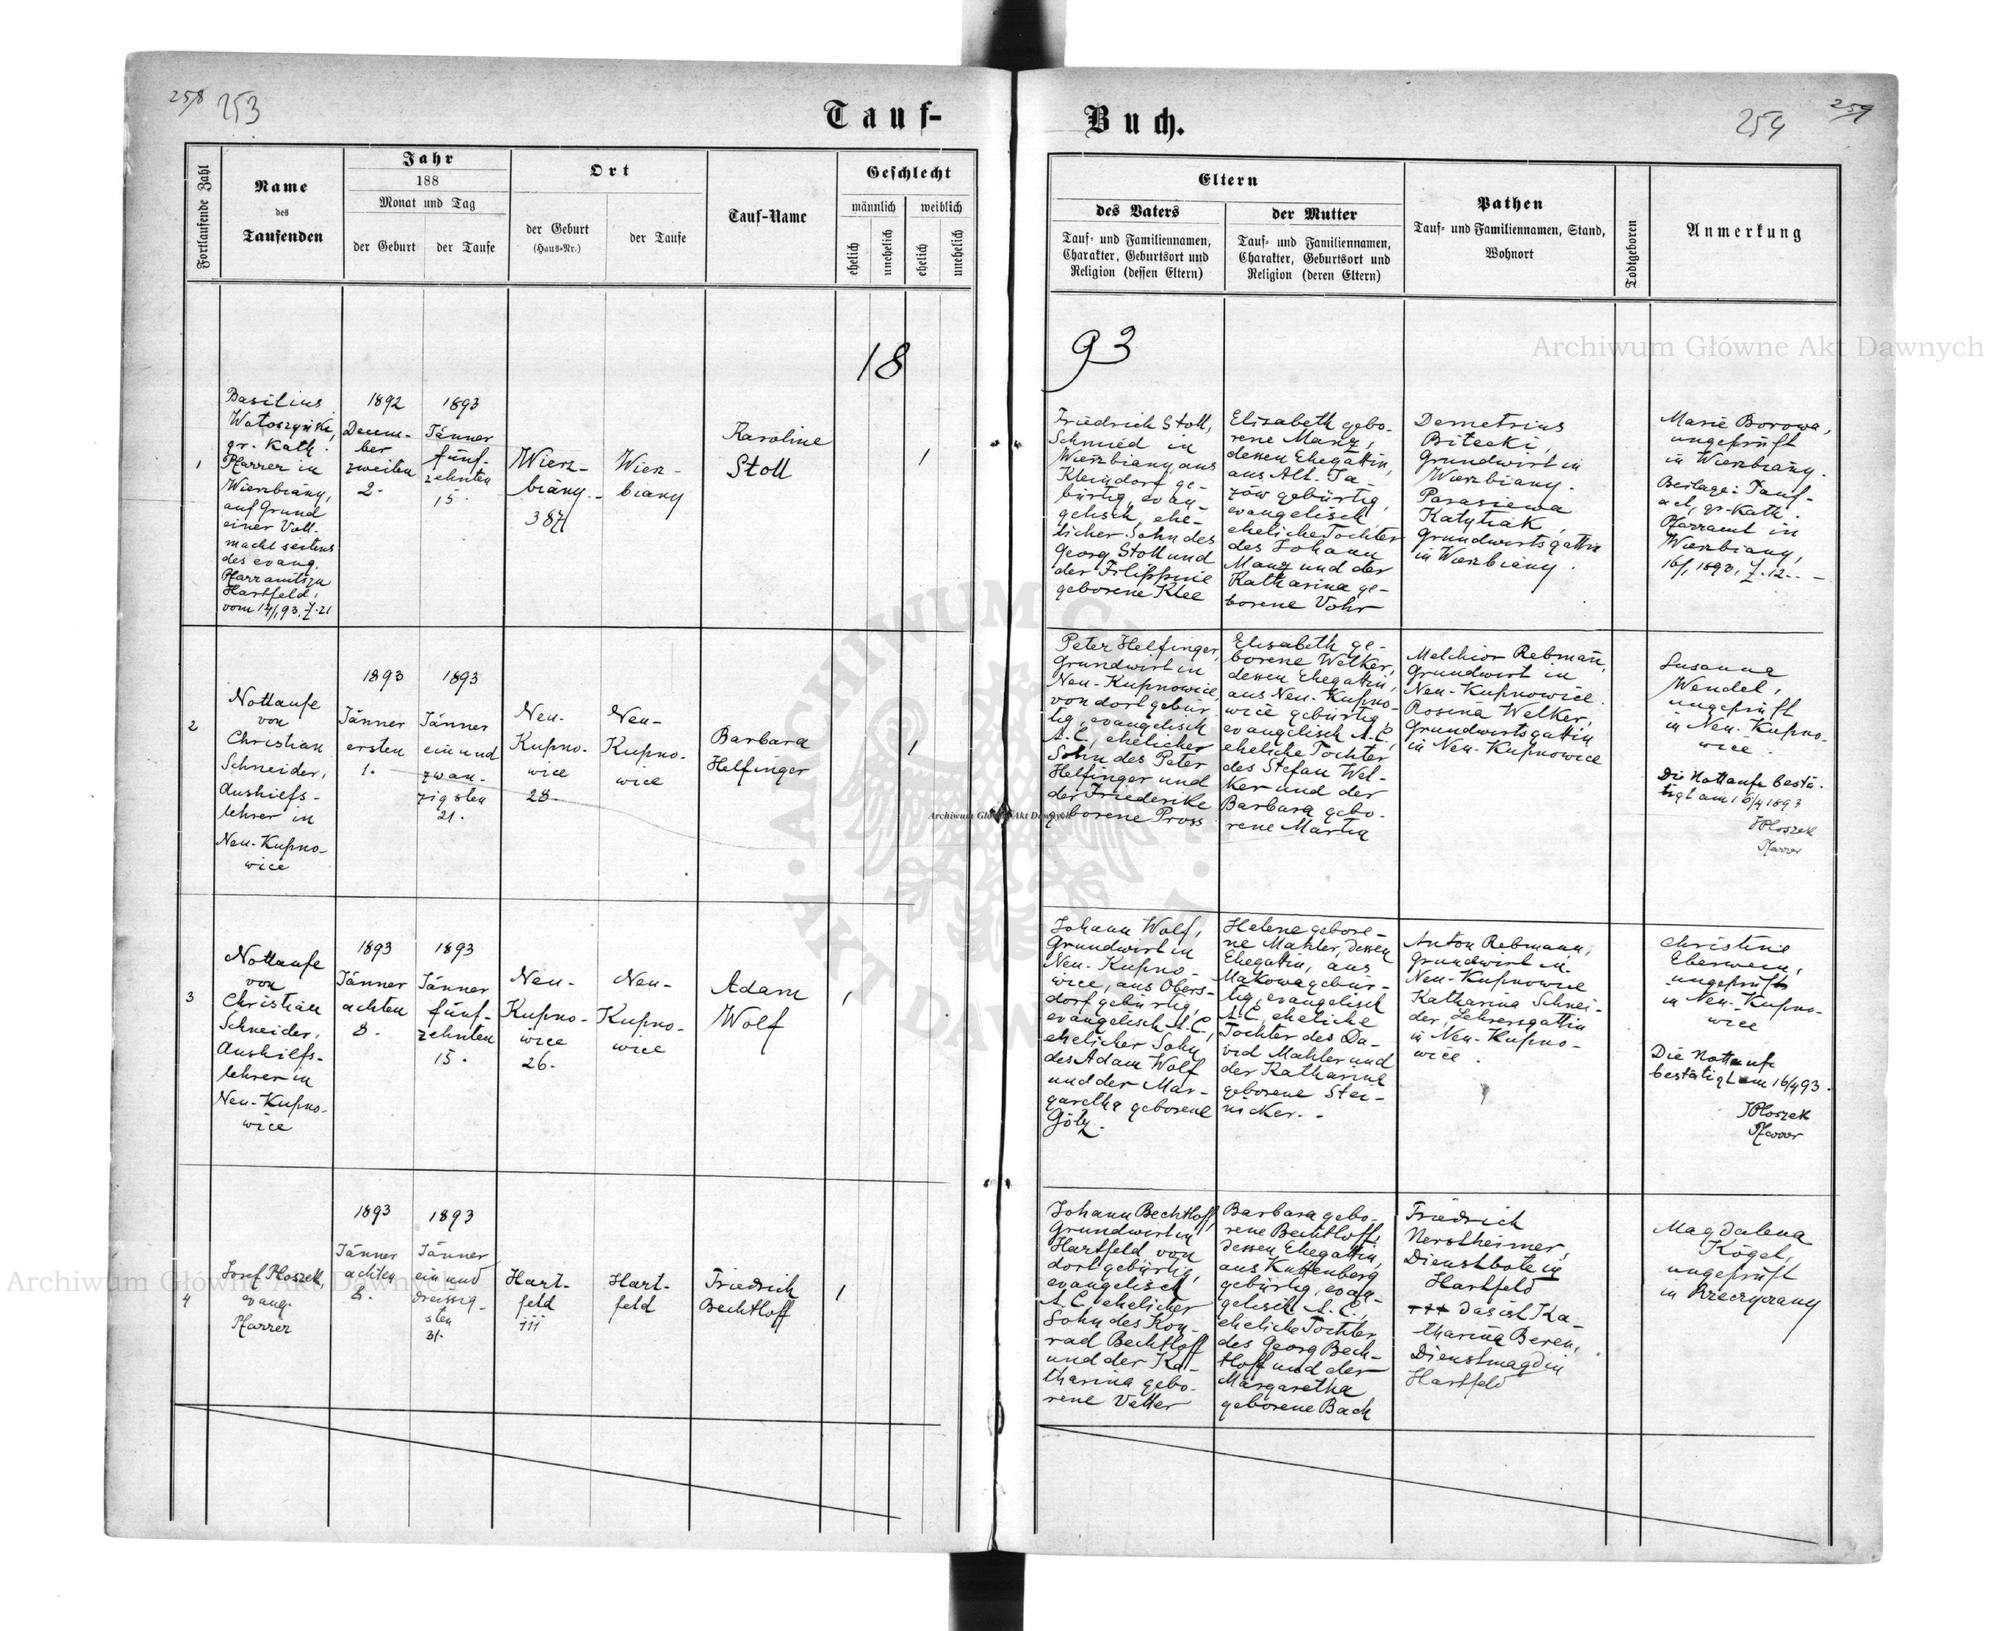 258 253
Tauf-
Buch.
254 259
Fortlaufende Zahl
Name
des
Taufenden
Jahr
188
Monat und Tag
der Geburt
der Taufe
Ort
der Geburt
(Haus-Nr.)
der Taufe
Tauf-Name
Geschlecht
männlich
weiblich
ehelich
unehelich
ehelich
unehelich
Eltern
des Vaters
Tauf- und Familiennamen,
Charakter, Geburtsort und
Religion (dessen Eltern)
der Mutter
Tauf- und Familiennamen,
Charakter, Geburtsort und
Religion (deren Eltern)
Pathen
Tauf- und Familiennamen, Stand,
Wohnort
Todtgeboren
Anmerkung
18
93
1
Basilius
Wołoszyński,
gr. Kath.
Pfarrer in
Wierzbiany,
auf Grund
einer Voll-
macht seitens
des evang.
Pfarramts zu
Hartfeld,
vom 12/1, 93, Z. 21
1892
Decem-
ber
zweiten
2.
1893
Jänner
fünf-
zehnten
15.
Wierz-
biany.
387
Wierz-
biany
Karoline
Stoll
1
Friedrich Stoll,
Schmied in
Wierzbiany, aus
Kleindorf ge-
bürtig, evan-
gelisch, ehe-
licher Sohn des
Georg Stoll und
der Filippine
geborene Klee
Elisabeth gebo-
rene Manz,
dessen Ehegattin,
aus Alt-Ja-
zów gebürtig,
evangelisch,
eheliche Tochter
des Johann
Manz und der
Katharina ge-
borene Vohr
Demetrius
Bitecki,
Grundwirt in
Wierzbiany.
Parasiewa
Katytiak,
Grundwirtsgattin
in Wierzbiany.
Marie Borowa,
ungeprüft
in Wierzbiany.
Beilage: Tauf-
act, gr. Kath.
Pfarramt in
Wierzbiany,
16/1, 1893, Z. 12.
2
Nottaufe
von
Christian
Schneider,
Aushilfs-
lehrer in
Neu-Kupno-
wice
1893
Jänner
ersten
1.
1893
Jänner
ein und
zwan-
zigsten
21.
Neu-
Kupno-
wice
28.
Neu-
Kupno-
wice
Barbara
Helfinger
1
Peter Helfinger,
Grundwirt in
Neu-Kupnowice,
von dort gebür-
tig, evangelisch
A.C., ehelicher
Sohn des Peter
Helfinger und
der Friederike
geborene Pross
Elisabeth ge-
borene Welker,
dessen Ehegattin,
aus Neu-Kupno-
wice gebürtig,
evangelisch A.C.,
eheliche Tochter
des Stefan Wel-
ker und der
Barbara gebo-
rene Martin
Melchior Rebmañ,
Grundwirt in
Neu-Kupnowice.
Rosina Welker,
Grundwirtsgattin
in Neu-Kupnowice
Susanna
Wendel,
ungeprüft
in Neu-Kupno-
wice.
Die Nottaufe bestä-
tigt am 16/4 1893
JPloszek
Pfarrer
3
Nottaufe
von
Christian
Schneider,
Aushilfs-
lehrer in
Neu-Kupno-
wice
1893
Jänner
achten
8.
1893
Jänner
fünf-
zehnten
15.
Neu-
Kupno-
wice
26.
Neu-
Kupno-
wice
Adam
Wolf
1
Johann Wolf,
Grundwirt in
Neu-Kupno-
wice, aus Obers-
dorf gebürtig,
evangelisch A.C.,
ehelicher Sohn
des Adam Wolf
und der Mar-
garetha geborene
Götz.
Helene gebore-
ne Mahler, dessen
Ehegattin, aus
Makowa gebür-
tig, evangelisch
A.C., eheliche
Tochter des Da-
vid Mahler und
der Katharina
geborene Stei-
nicker.
Anton Rebmann,
Grundwirt in
Neu-Kupnowice
Katharina Schnei-
der Lehrersgattin
in Neu-Kupno-
wice.
Christine
Eberwein,
ungeprüft
in Neu-Kupno-
wice
Die Nottaufe
bestätigt am 16/4 93.
JPloszek
Pfarrer
4
Josef Ploszek,
evang.
Pfarrer
1893
Jänner
achten
8.
1893
Jänner
ein und
dreissig-
sten
31.
Hart-
feld
111
Hart-
feld
Friedrich
Bechtloff
1
Johann Bechtloff,
Grundwirt in
Hartfeld von
dort gebürtig,
evangelisch
A.C. ehelicher
Sohn des Kon-
rad Bechtloff
und der Ka-
tharina gebo-
rene Vetter
Barbara gebo-
rene Bechtloff,
dessen Ehegattin,
aus Kuttenberg
gebürtig, evan-
gelisch A.C.,
eheliche Tochter
des Georg Bech-
tloff und der
Margaretha
geborene Bach
Friedrich
Nerstheimer,
Dienstbote in
Hartfeld
+++ das ist Ka-
tharina Beren,
Dienstmagd in
Hartfeld
Magdalena
Kogel,
ungeprüft
in Rzeczyczany
Archiwum Główne Akt Dawnych
Archiwum Główne Akt Dawnych
Archiwum Główne Akt Dawnych